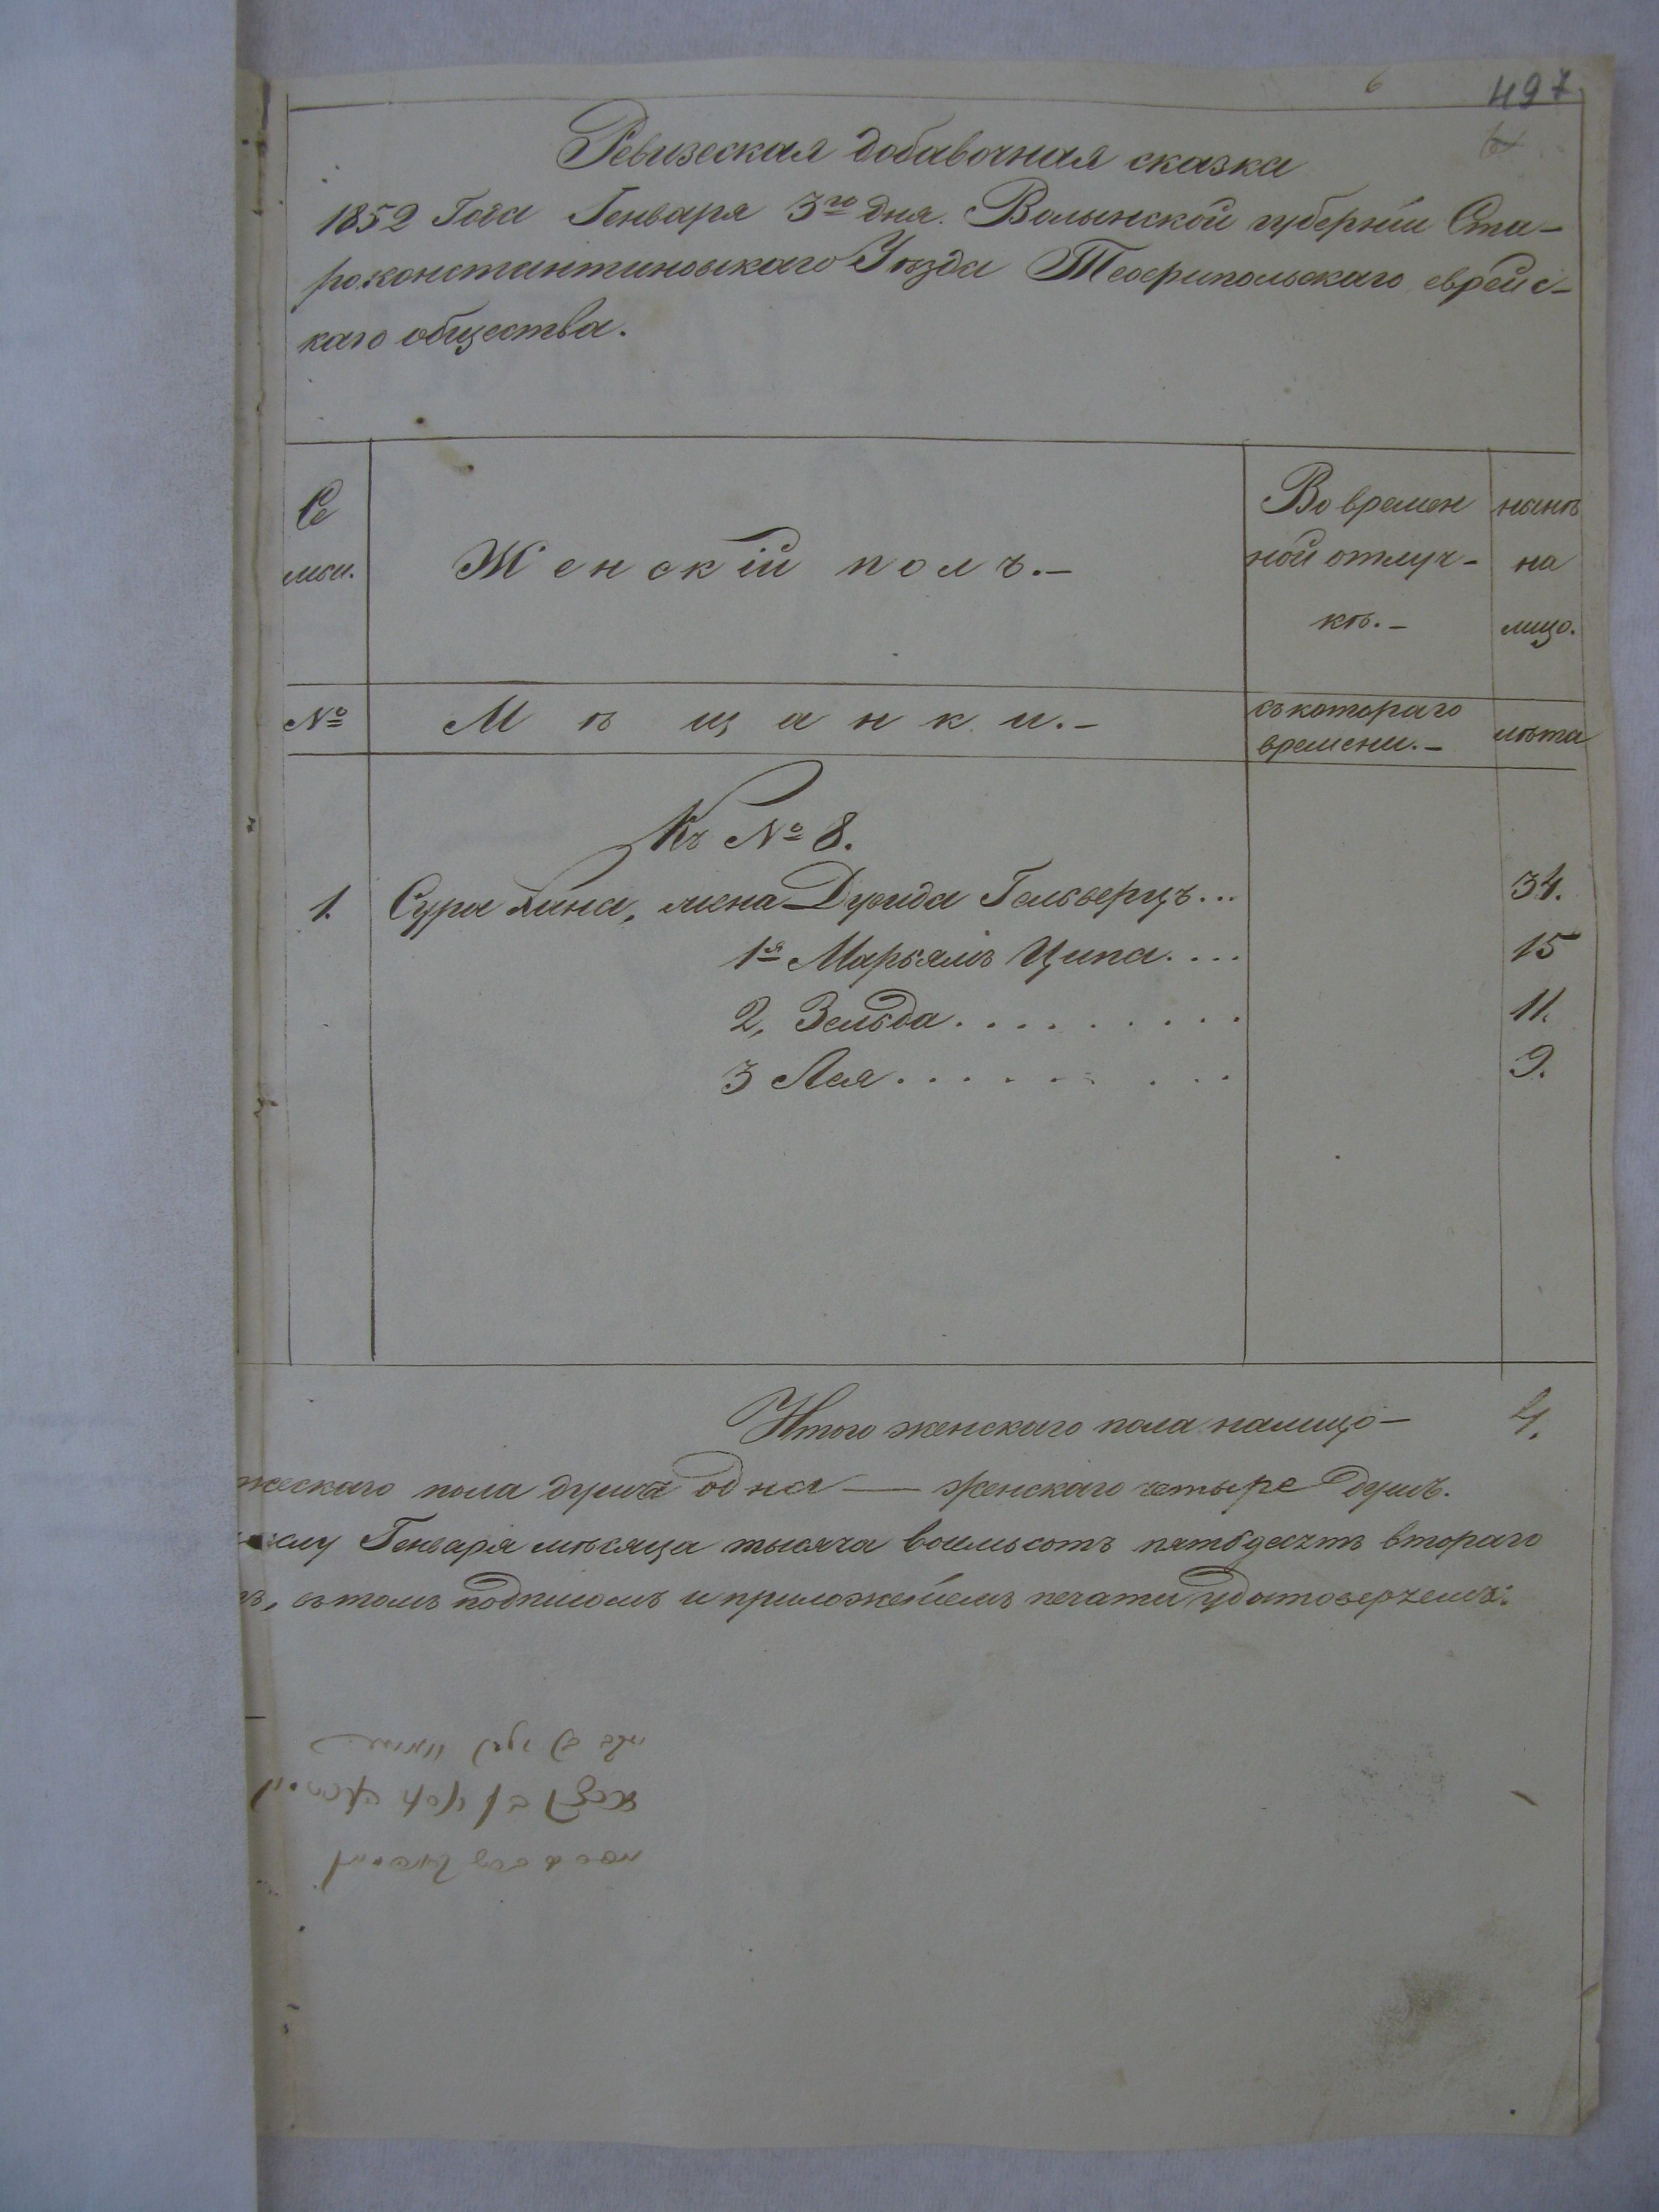 6
497
Ревизская добавочная сказка
1852 Года Генваря 3го дня. Волынской губерніи Ста-
роконстантиновскаго Уѣзда Теофипольскаго еврейс-
каго общества.
Се
мьи.
Женскій полъ.-
Во времен
ной отлуч-
кѣ.-
нынѣ
на
лицо.
№
Мѣщанки.-
съ котораго
времени.-
лѣта
Къ № 8.
1. Сура Хана, жена Дувида Гельверцъ... 34.
1я Марьямъ Ципа.... 15
2, Зельда......... 11.
3 Лея......... 9.
Итого женскаго пола налицо- 4.
жескаго пола душа одна — женскаго четыре душъ.
Генваря мѣсяца тысяча восемьсотъ пятьдесятъ втораго
въ томъ подписомъ и приложеніемъ печати удостоверяемъ: